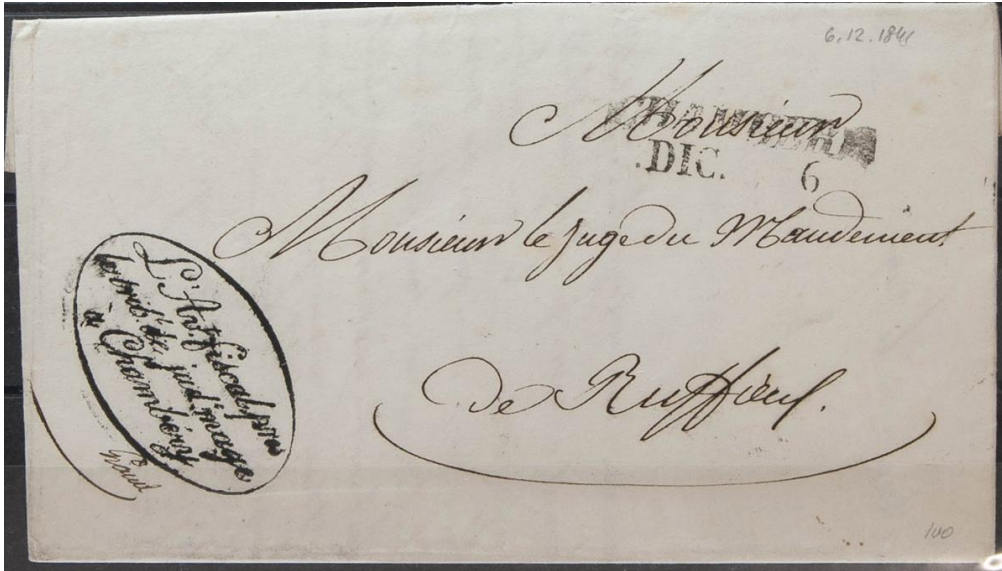 6.12.184
Monsieur
CHAMBERY
DIC. 6
Monsieur le Juge du Mandement
de Ruffieux.
L'Avt. fiscal près
le trib.l de jud. mage
à Chambéry
100